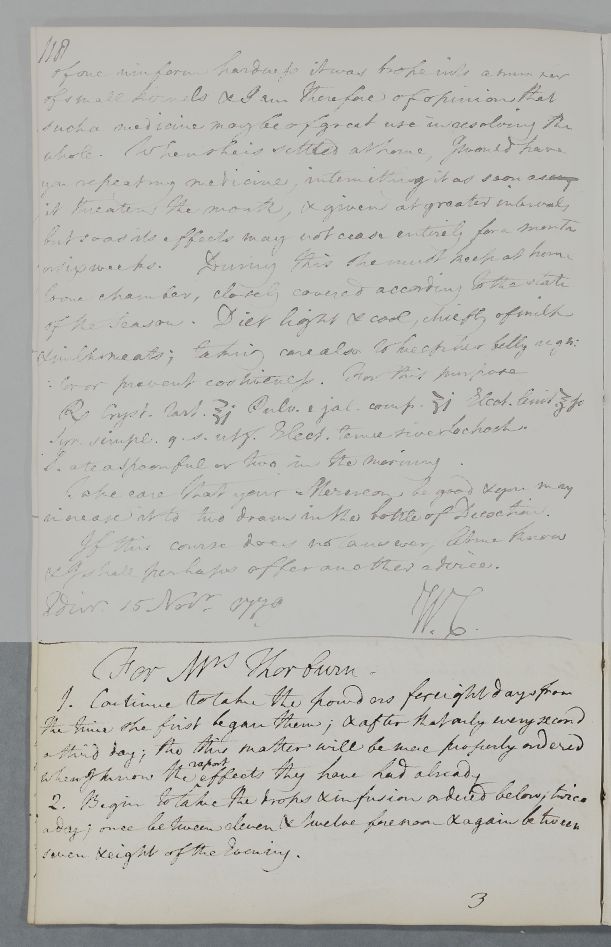 118
of one uniform hardness it was broke into a number
of small kernels & I am therefore of opinion that
such a medicine may be of great use in resolving the
whole. When she is settled at home, I would have
you repeating medicine, intermitting it as soon as
it threatens the mouth, & given at greater intervals
but so as its effects may not cease entirely for a month
or six weeks. During this she must keep at home
in one chamber, closely covered according to the state
of the Season. Diet light & cool, chiefly of milk
& milk meats; taking care also to keep her belly regu:
:lar or prevent costiveness. For this purpose
Rx Cryst. Tart. ʒj Pulv. e jal. comp. ʒj Elect. lenit. ʒjs
Syr. simpl. q. s. utf. Elect. tenue
a teaspoonful or two in the morning.
Take care that your Mezereon be good & you may
increase it to two drams in the bottle of Decoction.
If this course does not answer, let me know
& I shall perhaps offer another advice.
Edinr. 15 Novr. 1778 W. C.
For Mrs Thorburn.
1. Continue to take the powders for eight days from
the time she first began them; & after that only every second
or third day; tho this matter will be more properly ordered
when I know the rapport effects they have had already
2. Begin to take the drops & infusion ordered below; twice
a day; once between eleven & twelve forenoon & again between
seven & eight of the Evening.
3